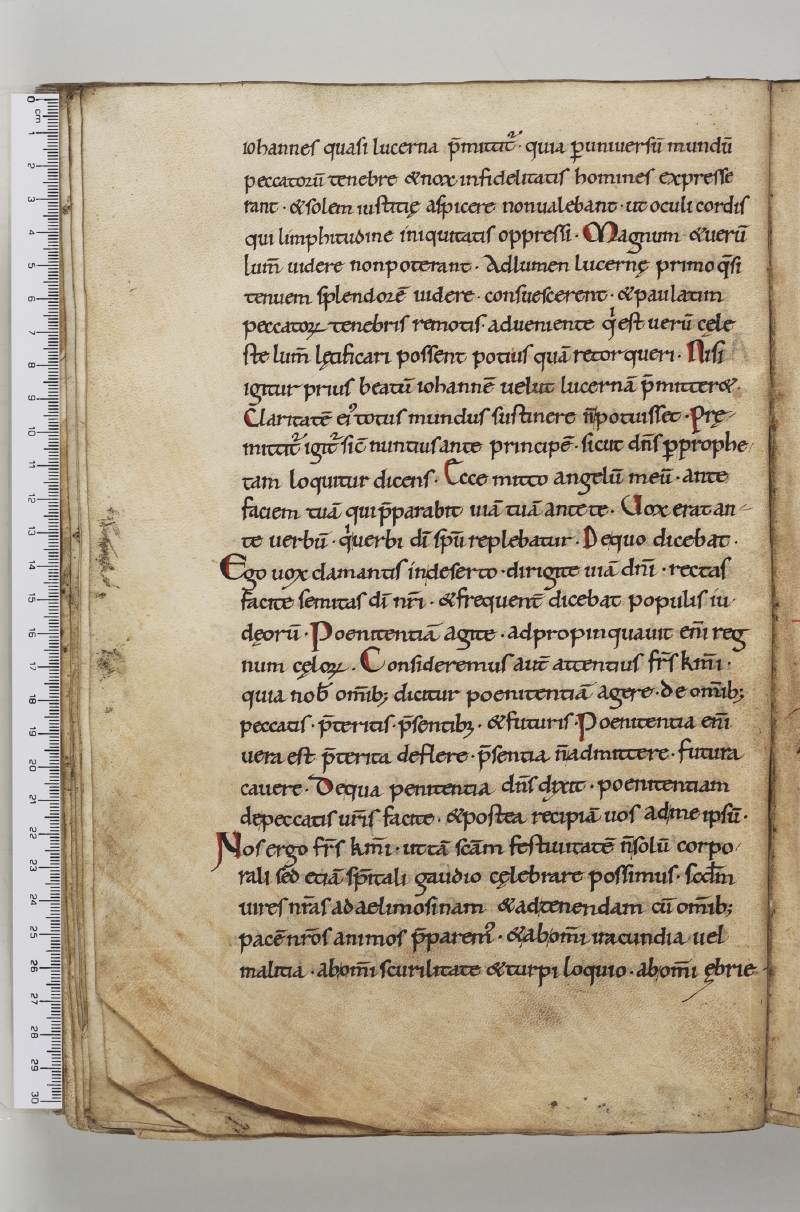 iohannes quasi lucerna p̄mittit᷑· quia ꝑ uniuersū mundū
peccatorū tenebre & nox infidelitatis homines expresse
rant· & solem iustitię aspicere non ualebant· ut oculi cordis
qui limphitudine iniquitatis oppressi· Magnum & uerū
lum̄ uidere non poterant· Ad lumen lucernę primo q̄si
tenuem splendorē uidere· consuescerent· & paulatim
peccatoꝝ tenebris remotis· adueniente qͥ est uerū cęle
ste lum̄ lętificari possent potius quā retorqueri· Nisi
igitur prius beatū iohannē uelut lucernā p̄mitter&·
Claritatē ei᷒ totus mundus sustinere n̄ potuisset· Prę-
mittit᷑ igit᷑ sic̄ nuntius ante principē· sicut dn̄s ꝑ prophe
tam loquitur dicens· Ecce mitto angelū meū· ante
faciem tuā qui p̄parabit uiā tuā ante te· Uox erat an-
te uerbū· qͥ uerbi dī sp̄u replebatur· De quo dicebat·
Ego uox clamantis in deserto· dirigite uiā dn̄i· rectas
facite semitas dī nr̄i· & frequent̄ dicebat populis iu
dęorū· Poenitentiā agite· adpropinquauit eni̅ reg
num cęloꝝ· Consideremus aut̄ attentius fr̄s km̄i·
quia nob̄ om̄ib; dicitur poenitentiā agere· de om̄ib;
peccatis· p̄teritis· p̄sentibꝫ· & futuris· Poenitentia eni̅
uera est p̄terita deflere· p̄sentia n̄ admittere· futura
cauere· De qua penitentia dn̄s dixit· poenitentiam
de peccatis ur̄is facite· & postea recipiā uos ad me ipsū·
Nos ergo fr̄s km̄i· ut tā scām festiuitatē n̄ solū corpo
rali sed etiā sp̄itali gaudio cęlebrare possimus· scd̄m
uires nr̄as ad aelimosinam & ad tenendam cū om̄ib;
pacē nr̄os animos p̄parem᷒· & ab om̄i iracundia uel
malitia· ab om̄i scurilitate & turpi loquio· ab om̄i ębrie-